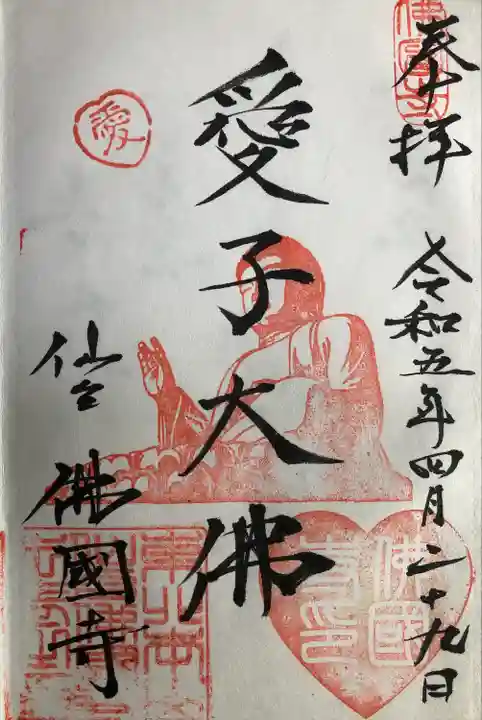 奉拝
令和五年四月二十九日
愛子大佛
仙台
佛國寺
愛
佛國寺印